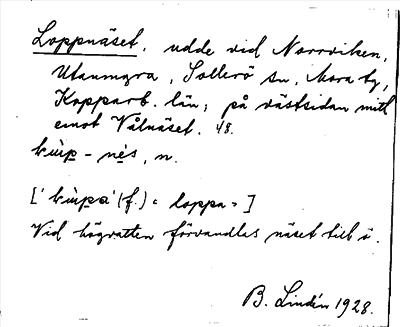 Loppnäset, udde vid Norrviken,
Utanmyra, Sollerö sn, Mora tg,
Kopparb. län; på västsidan mitt
emot Vålnäset. 48.
- nès, n.
(f.) = loppa = ]
Vid högvatten förvandlas näset till ö.
B. Lindén 1928.